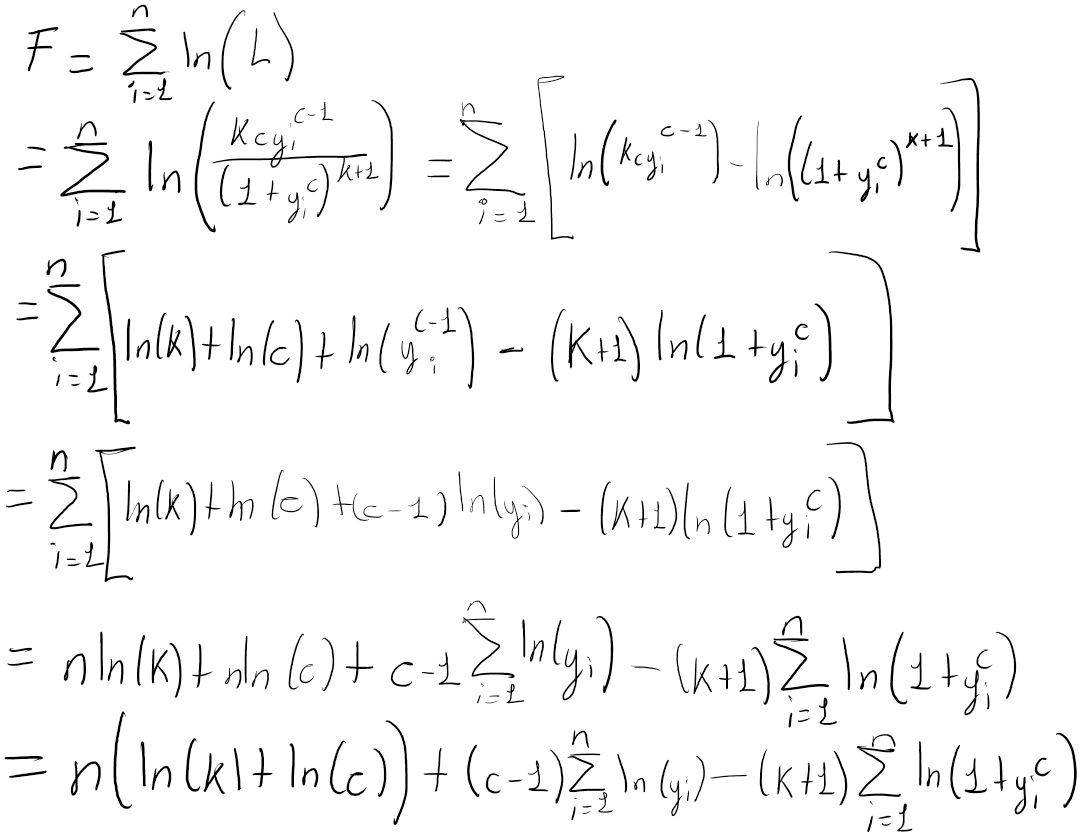 F = \sum_{i=1}^{n} ln(L)
= \sum_{i=1}^{n} ln(\frac{kcy_i^{c-1}}{(1+y_i^c)^{k+1}}) = \sum_{i=1}^{n} [ln(kcy_i^{c-1}) - ln((1+y_i^c)^{k+1})]
= \sum_{i=1}^{n} [ln(k)+ln(c)+ln(y_i^{c-1}) - (k+1) ln(1+y_i^c)]
= \sum_{i=1}^{n} [ln(k)+ln(c)+(c-1) ln(y_i) - (k+1) ln(1+y_i^c)]
= n ln(k)+n ln(c)+ c-1 \sum_{i=1}^{n} ln(y_i) - (k+1) \sum_{i=1}^{n} ln(1+y_i^c)
= n(ln(k)+ln(c)) + (c-1) \sum_{i=1}^{n} ln(y_i) - (k+1) \sum_{i=1}^{n} ln(1+y_i^c)